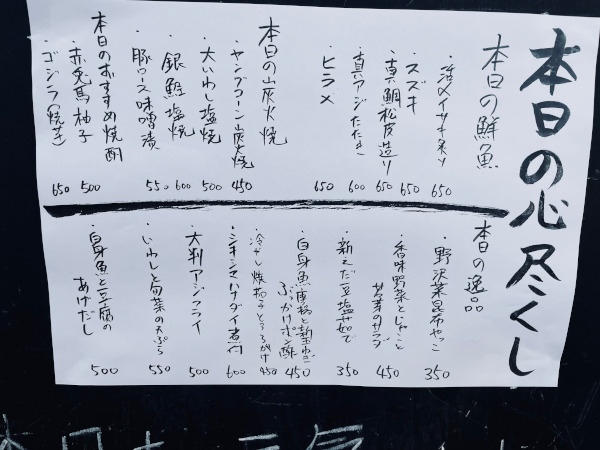 本日の心尽くし
本日の鮮魚
・活〆イサキ炙り 650
・スズキ 650
・真鯛松皮造り 650
・真アジたたき 600
・ヒラメ 650
本日の炭火焼
・ヤングコーン炭火焼 450
・大いわし塩焼 500
・銀鮭塩焼 600
・豚ロース味噌漬 550
本日のおすすめ焼酎
・赤兎馬柚子 500
・ゴジラ(焼芋) 650
本日の逸品
・野沢菜昆布やっこ 350
・香味野菜とじゃこと
サラダ 450
・新えだ豆塩茹で 350
・白身魚唐揚と新玉ねぎ
ぶっかけポン酢 450
・冷やし焼茄子とろろがけ 450
・シキシマハナダイ煮付 600
・大判アジフライ 500
・いわしと旬菜の天ぷら 550
・白身魚と豆腐の
あげだし 500